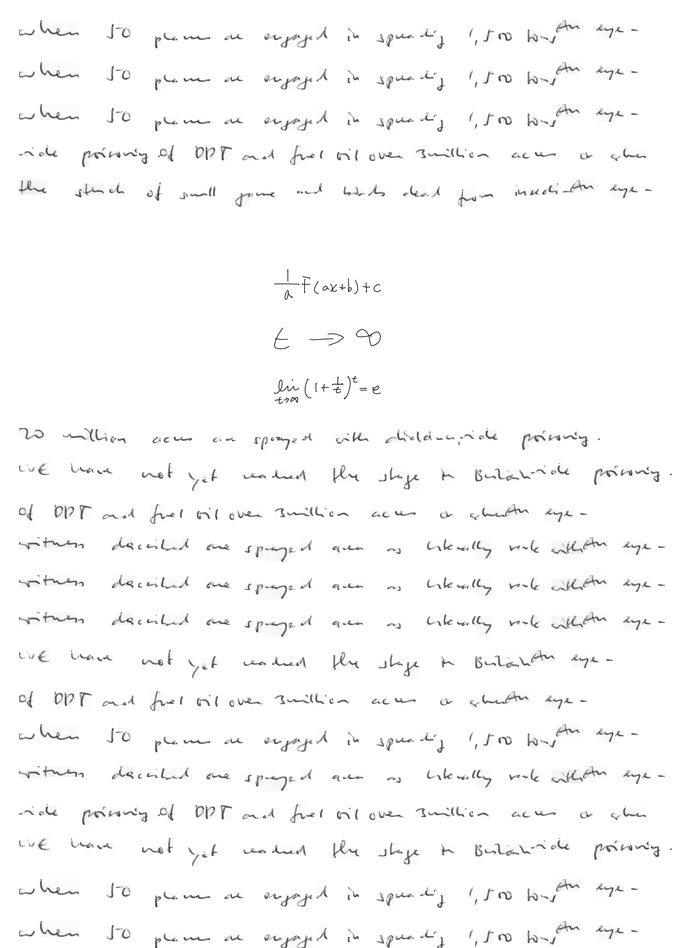 when 50 planes are engaged in spreading 1,500 tons An eye-
when 50 planes are engaged in spreading 1,500 tons An eye-
when 50 planes are engaged in spreading 1,500 tons An eye-
-ide poisoning of DDT and fuel oil over 3 million acres or when
the stench of small game and birds dead from insecti- An eye-
\frac{1}{a}F(ax+b)+c
t → ∞
\lim_{t→∞}(1+\frac{1}{t})^t=e
20 million acres are sprayed with dieldrin -ide poisoning.
We have not yet reached the stage in Britain -ide poisoning.
of DDT and fuel oil over 3 million acres or when An eye-
witness described one sprayed area as literally reek with An eye-
witness described one sprayed area as literally reek with An eye-
witness described one sprayed area as literally reek with An eye-
We have not yet reached the stage in Britain An eye-
of DDT and fuel oil over 3 million acres or when An eye-
when 50 planes are engaged in spreading 1,500 tons An eye-
witness described one sprayed area as literally reek with An eye-
-ide poisoning of DDT and fuel oil over 3 million acres or when
We have not yet reached the stage in Britain -ide poisoning.
when 50 planes are engaged in spreading 1,500 tons An eye-
when 50 planes are engaged in spreading 1,500 tons An eye-